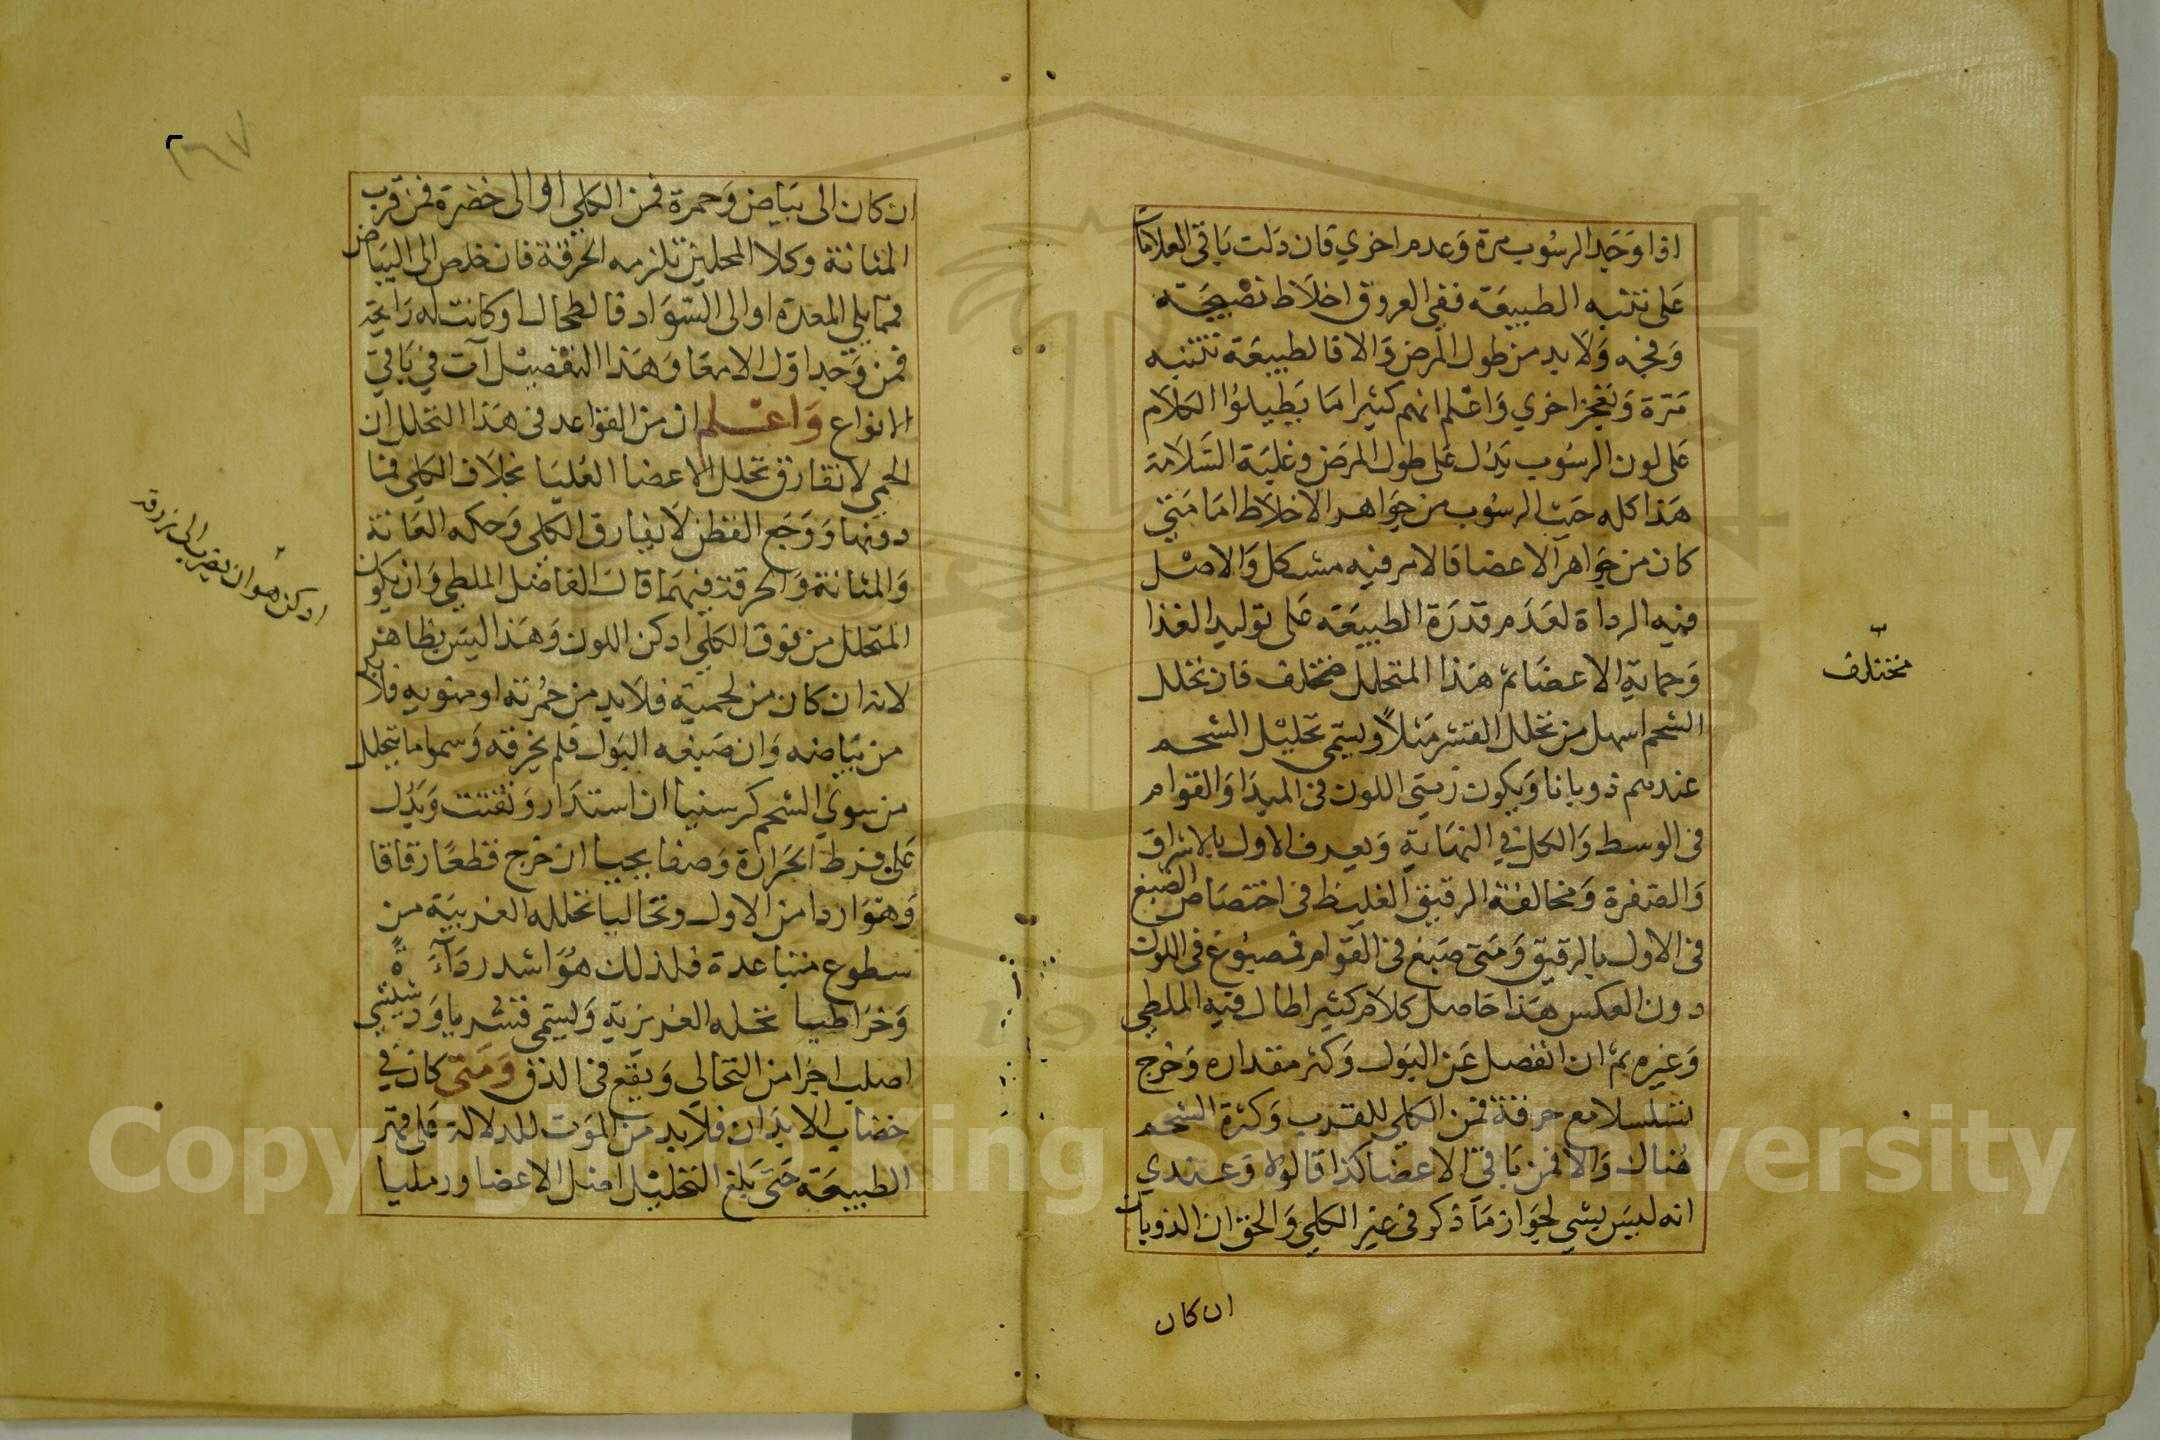 اذا وَجَد الرسُوب مرة وَعدم اخري فان دَلت بَاقى العلامات
عَلى نتنبه الطبيعَة ففى العروق اخلَاط نضيجَة
وَفجه وَلَابد من طول المرض وَالا فالطبيعَة تتنبه
مَرة وَتعجز اخري وَاعْلم انهم كثيرا مَا يَطيلوُا الكلَام
عَلى لون الرسُوب يَدُل عَلى طول المرَض وغلبَة السَّلَامة
هَذا كله حَيث الرسُوب من جوَاهر الاخلَاط امَا مَتي
كان من جوَاهر الاعضا فالامر فيه مشكل وَالاصْل
فيه الرداة لعَدَم قدرَة الطبيعَة عَلى توليد الغذا
وَحمايَة الاعضَا ثم هَذا المتحلل مختلف فان تحلل
الشحم اسهل من تحلل القشر مَثلاً ويسَمى تحليْل الشحم
عندهم ذوبانا وَيكون زيتى اللون في المبدَا وَالقوام
في الوسط وَالكل في النهَايَة وَيعرف الاول بالاشراق
وَالصفرة وَمخالفة الرقيق الغليظ في اختصَاص الصبغ
في الاول بالرقيق وَمَتى صَبغ في القوام فمصبُوغ في اللون
دون العكس هَذا حَاصل كلَام كثير اطال فيه الملطي
وَغيره ثم ان انفصل عَن البَول وَكثر مقداره وَخرج
متسلسلا مع حرقة فمن الكلي للقرب وَكثرة الشحم
هُناك وَالا فمن بَاقي الاعضَا كذا قالوْه وَعندي
انه لَيسَ بشي لجوَاز مَا ذكر في غير الكلي وَالحق ان الذوبان
ان كان
مختلف
ان كان الى بَيَاض وَحمرة فمن الكلي اوا لى خضرة فمن قرب
المثانة وكلا المحلين تلزمه الحرقة فان خلص الى البيَاض
فمما يلي المعدة او الى السَّوَاد فالطحال او كانت له رَايحة
فمن وَحد اول الامعَا وَهَذا التفصيْل آت في بَاقي
الانواع وَاعْلم ان من القوَاعد في هَذا التحلل ان
الحمي لا تفارق تحلل الاعضا العُليَا بخلَاف الكلي فما
دونها وَوَجَع القطن لَا يفارق الكلى وَحكه العَانة
وَالمثانة وَالحرقة فيهمَا قال الفاضل الملطي وَان يكون
المتحلل من فوق الكلي ادكن اللون وَهَذا ليسَ بظاهر
لانه ان كان من لحمية فلَابد من حمُرته او منويه فلابد
من بيَاضه وَان صَبغه البَول فلم يخرقه وَسموا ما يتحلل
من سوي الشحم كرسنيا ان استدَار وَتفتت وَيَدُل
عَلى فرط الحَرارَة وَصفايحيا ان خرج قطعًا رقاقا
وَهوَ اردا من الاول ونخاليا تحلله الغريبَة من
سطوع متباعدة فلذلك هوَ اشد ردَآءَةً
وَخرَاطيا تحله الغريزيَة وَيسَمى قشريا وَدشيشي
اصلب اجزا من النخالي وَيقع في الدق وَمَتى كان في
خضَاب الابدَان فلَابد من الموَت للدلالة عَلى قهر
الطبيعَة حَتى بَلغ التحليْل اصْل الاعضا ورمليا
ادكن هو ان يضرب الى زرقة
٢٦٧
Copyright © King Saud University